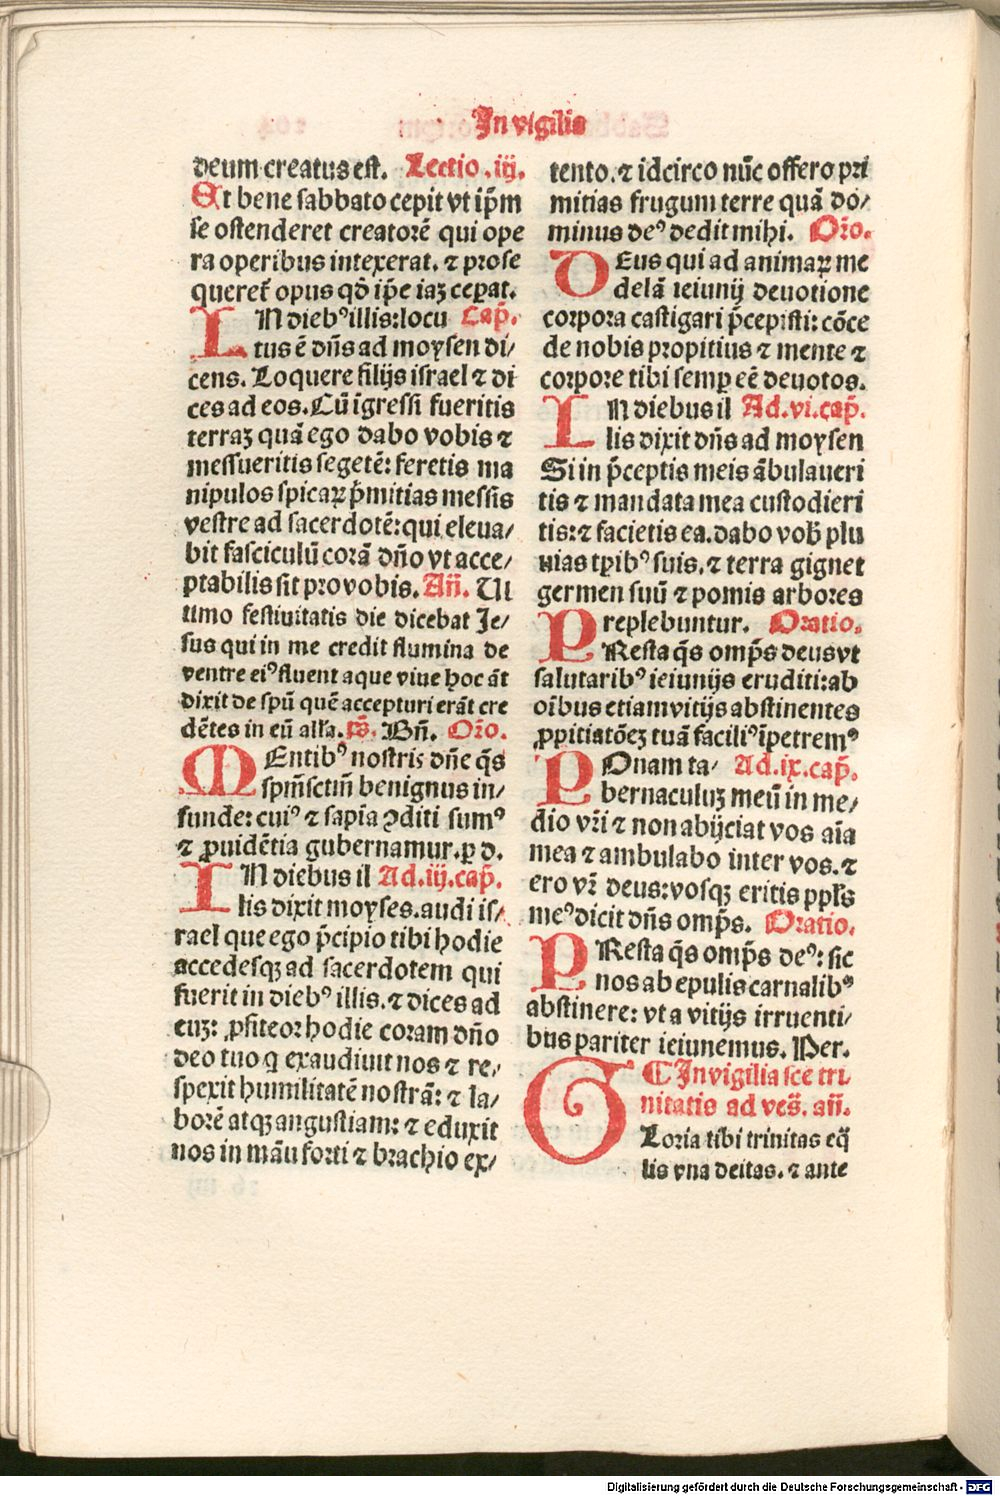 In vigilia
deum creatus est. Lectio .iij.
Et bene sabbato cepit vt ip̄m
se ostenderet creatorē qui ope
ra operibus intexerat. ⁊ prose
queret̄ opus qḋ ip̄e iaꝫ ceꝑat.
IN diebꝰ illis: locu Cap̄.
tus ē dn̄s ad moysen di/
cens. Loquere filijs israel ⁊ di
ces ad eos. Cū īgressi fueritis
terraꝫ quā ego dabo vobis ⁊
messueritis segetē: feretis ma
nipulos spicaꝝ p̄mitias messis
vestre ad sacerdotē: qui eleua/
bit fasciculū corā dn̄o vt acce/
ptabilis sit pro vobis. An̄. Ul
timo festiuitatis die dicebat Je/
sus qui in me credit flumina de
ventre eiꝰ fluent aque viue hoc āt
dixit de spū quē accepturi erāt cre
dētes in eū alľa. ps̄. Bn̄. Or̄o.
MEntibꝰ nostris dn̄e q̄s
spm̄sctm̄ benignus in/
funde: cuiꝰ ⁊ sapīa ꝯditi sumꝰ
⁊ ꝓuidētia gubernamur. ꝑ d.
IN diebus il Ad .iij. cap̄.
lis dixit moyses. audi is/
rael que ego p̄cipio tibi hodie
accedesqꝫ ad sacerdotem qui
fuerit in diebꝰ illis. ⁊ dices ad
euꝫ: ꝓfiteor hodie coram dn̄o
deo tuo q exaudiuit nos ⁊ re/
spexit humilitatē nostrā: ⁊ la/
borē atqꝫ angustiam: ⁊ eduxit
nos in māu forti ⁊ brachio ex/
tento. ⁊ idcirco nūc offero pri
mitias frugum terre quā do/
minus deꝰ dedit mihi. Or̄o.
DEus qui ad animaꝝ me
delā ieiunij deuotione
corpora castigari p̄cepisti: cōce
de nobis propitius ⁊ mente ⁊
corpore tibi semꝑ eē deuotos.
IN diebus il Ad .vi. cap̄.
lis dixit dn̄s ad moysen
Si in p̄ceptis meis ābulaueri
tis ⁊ mandata mea custodieri
tis: ⁊ facietis ea. dabo vob̄ plu
uias tꝑibꝰ suis. ⁊ terra gignet
germen suū ⁊ pomis arbores
replebuntur. Oratio.
PResta q̄s omp̄s deus vt
salutaribꝰ ieiunijs eruditi: ab
oībus etiam vitijs abstinentes
ꝓpitiatōeꝫ tuā faciliꝰ īpetremꝰ
POnam ta/ Ad .ix. cap̄.
bernaculuꝫ meū in me/
dio vr̄i ⁊ non abijciat vos aīa
mea ⁊ ambulabo inter vos. ⁊
ero vr̄ deus: vosqꝫ eritis pplɫs
meꝰ dicit dn̄s omp̄s. Oratio.
PResta q̄s omp̄s deꝰ: sic
nos ab epulis carnalibꝰ
abstinere: vt a vitijs irruenti/
bus pariter ieiunemus. Per.
¶ In vigilia sce tri
nitatis ad ves̄. an̄.
GLoria tibi trinitas eq̄
lis vna deitas. ⁊ ante
Digitalisierung gefördert durch die Deutsche Forschungsgemeinschaft - DFG